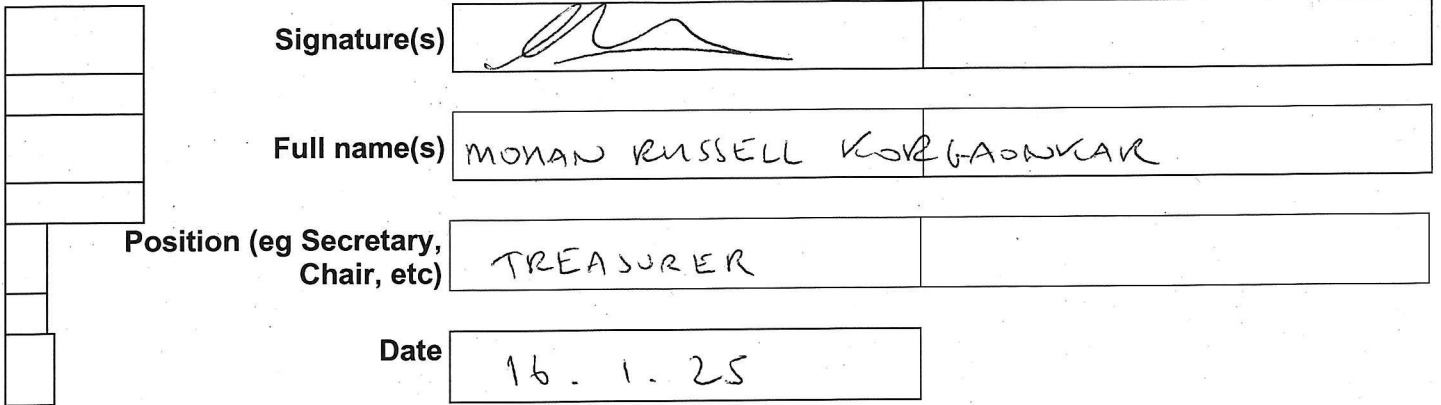 Signature(s)
Full name(s) MOHAN RUSSELL KORGAONKAR
Position (eg Secretary,
Chair, etc) TREASURER
Date 16 . 1 . 25